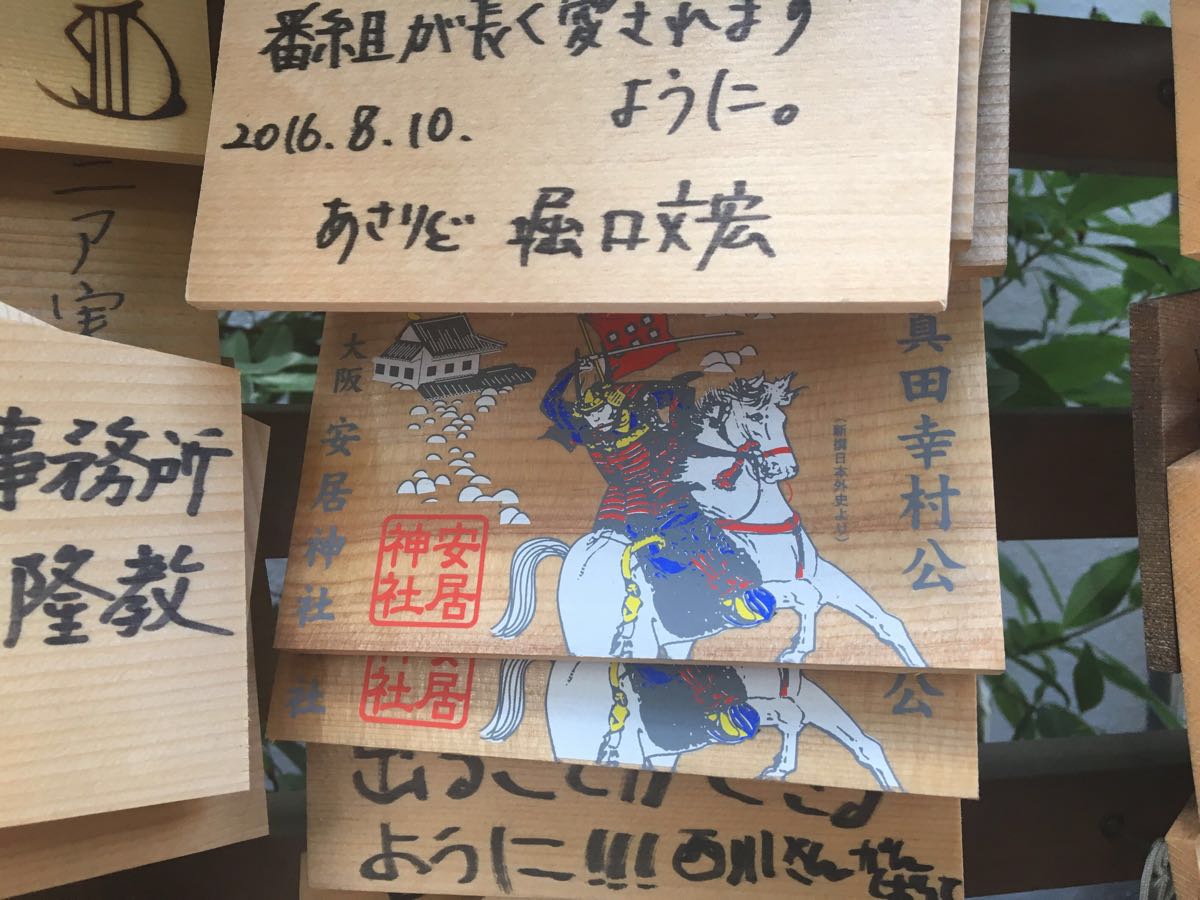 番組が長く愛されます
ように。
2016.8.10.
あさりど 堀口文宏
ニア実
事務所
隆教
大阪 安居神社
安居
神社
真田幸村公
社
居
社
公
出ることができる
ように!!!! 西川さん